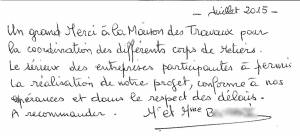 - Juillet 2015 -
Un grand Merci à la Maison des Travaux pour
la coordination des différents corps de Métiers.
Le sérieux des entreprises participantes a permis
la réalisation de notre projet, conforme à nos
espérances et dans le respect des délais.
A recommander. Mr et Mme B